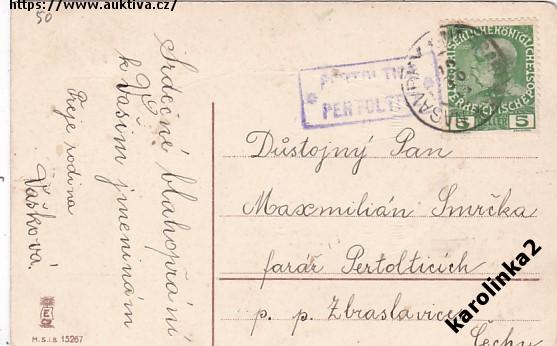 https://www.auktiva.cz/
50
Srdečné blahopřání
k Vašim jmeninám
Přeje rodina
Vašková.
PERTOLTI
KAISERLICHEKÖNIGLICHE
ÖSTERREICHISCHE POST
5 HELLER 5
Důstojný Pan
Maxmilián Smrčka
farář Pertolticích
p. p. Zbraslavice
Čechy
M.S.i.B 15267
karolinka2